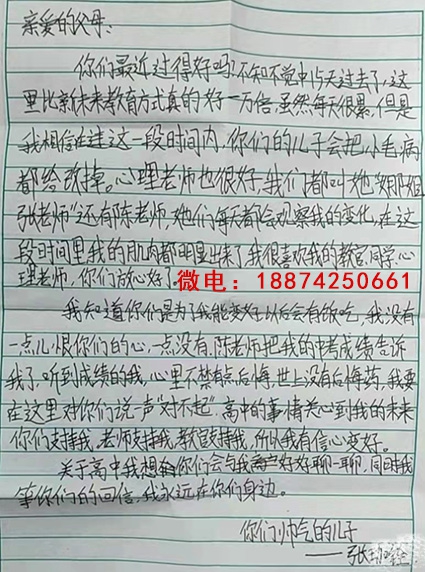 亲爱的父母:
你们最近过得好吗?不知不觉中45天过去了,这
里比京未来教育方式真的好一万倍,虽然每天很累,但是
我相信在这一段时间内,你们的儿子会把小毛病
都给改掉。心理老师也很好,我们都叫她"姐
张老师"还有陈老师,她们每天都会观察我的变化,在这
段时间里我的肌肉都明显出来了,我很喜欢我的教官,同学,心
理老师,你们放心好了。
微电:18874250661
我知道你们是为了我能变好以后会有饭吃,我没有
一点儿恨你们的心,一点没有,陈老师把我的中考成绩告诉
我了,听到成绩的我,心里不禁有点后悔,世上没有后悔药,我要
在这里对你们说一声"对不起",高中的事情关心到我的未来
你们支持我,老师支持我,教官支持我,所以我有信心变好。
关于高中我想你们会与我好好聊一聊,同时我
等你们的回信,我永远在你们身边。
你们帅气的儿子
——张